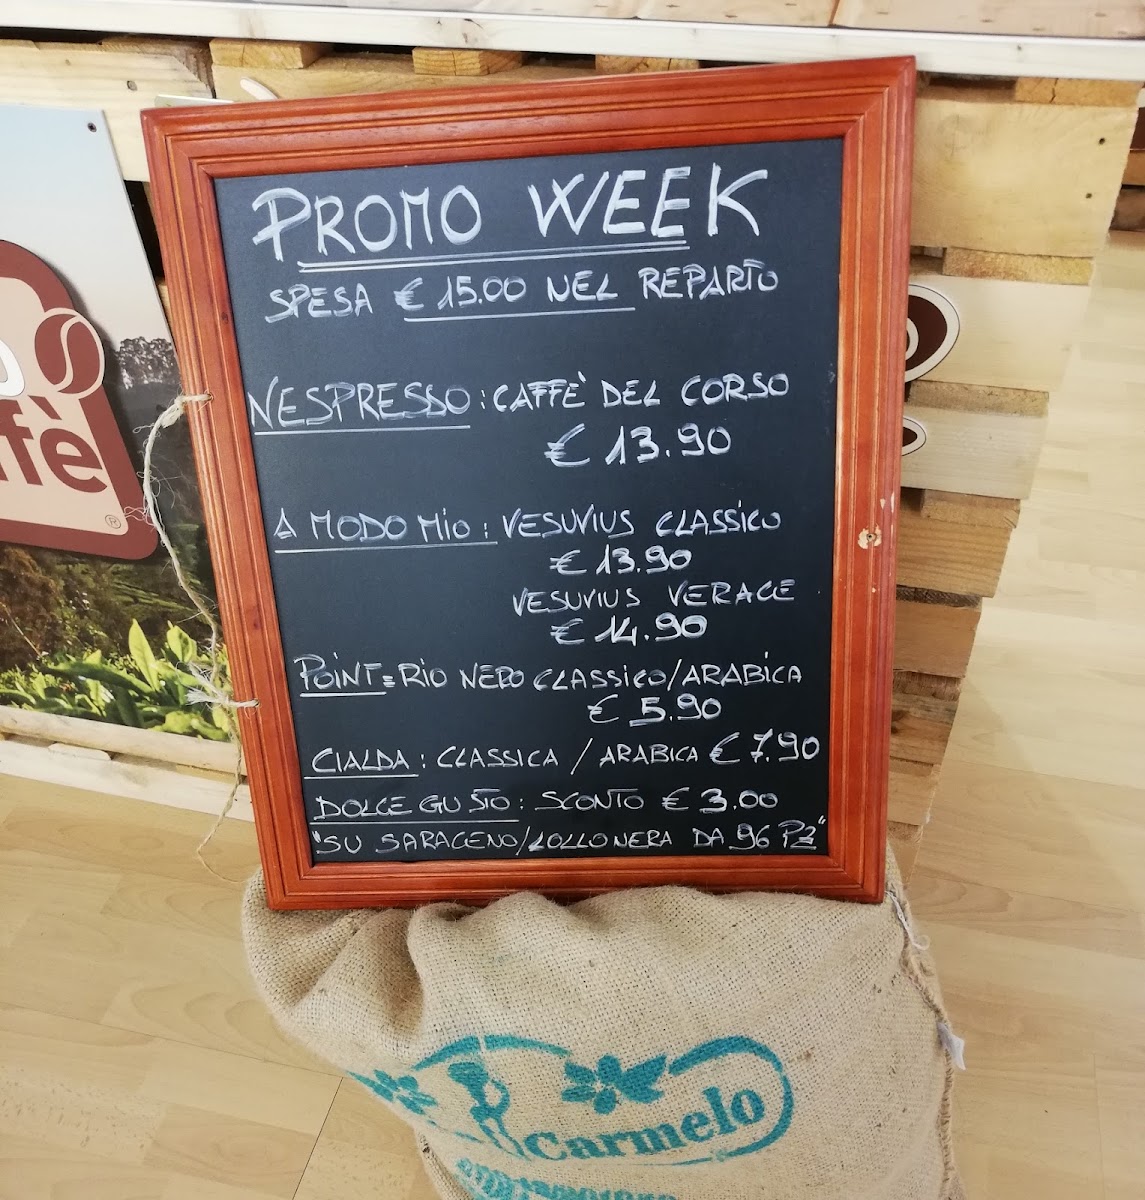 PROMO WEEK
SPESA € 15.00 NEL REPARTO
NESPRESSO : CAFFE' DEL CORSO
€ 13.90
A MODO MIO : VESUVIUS CLASSICO
€ 13.90
VESUVIUS VERACE
€ 14.90
POINT = RIO NERO CLASSICO/ARABICA
€ 5.90
CIALDA : CLASSICA / ARABICA € 7.90
DOLCE GUSTO : SCONTO € 3.00
"SU SARAGENO/LOLLO NERA DA 96 PZ"
fè
®
Carmelo